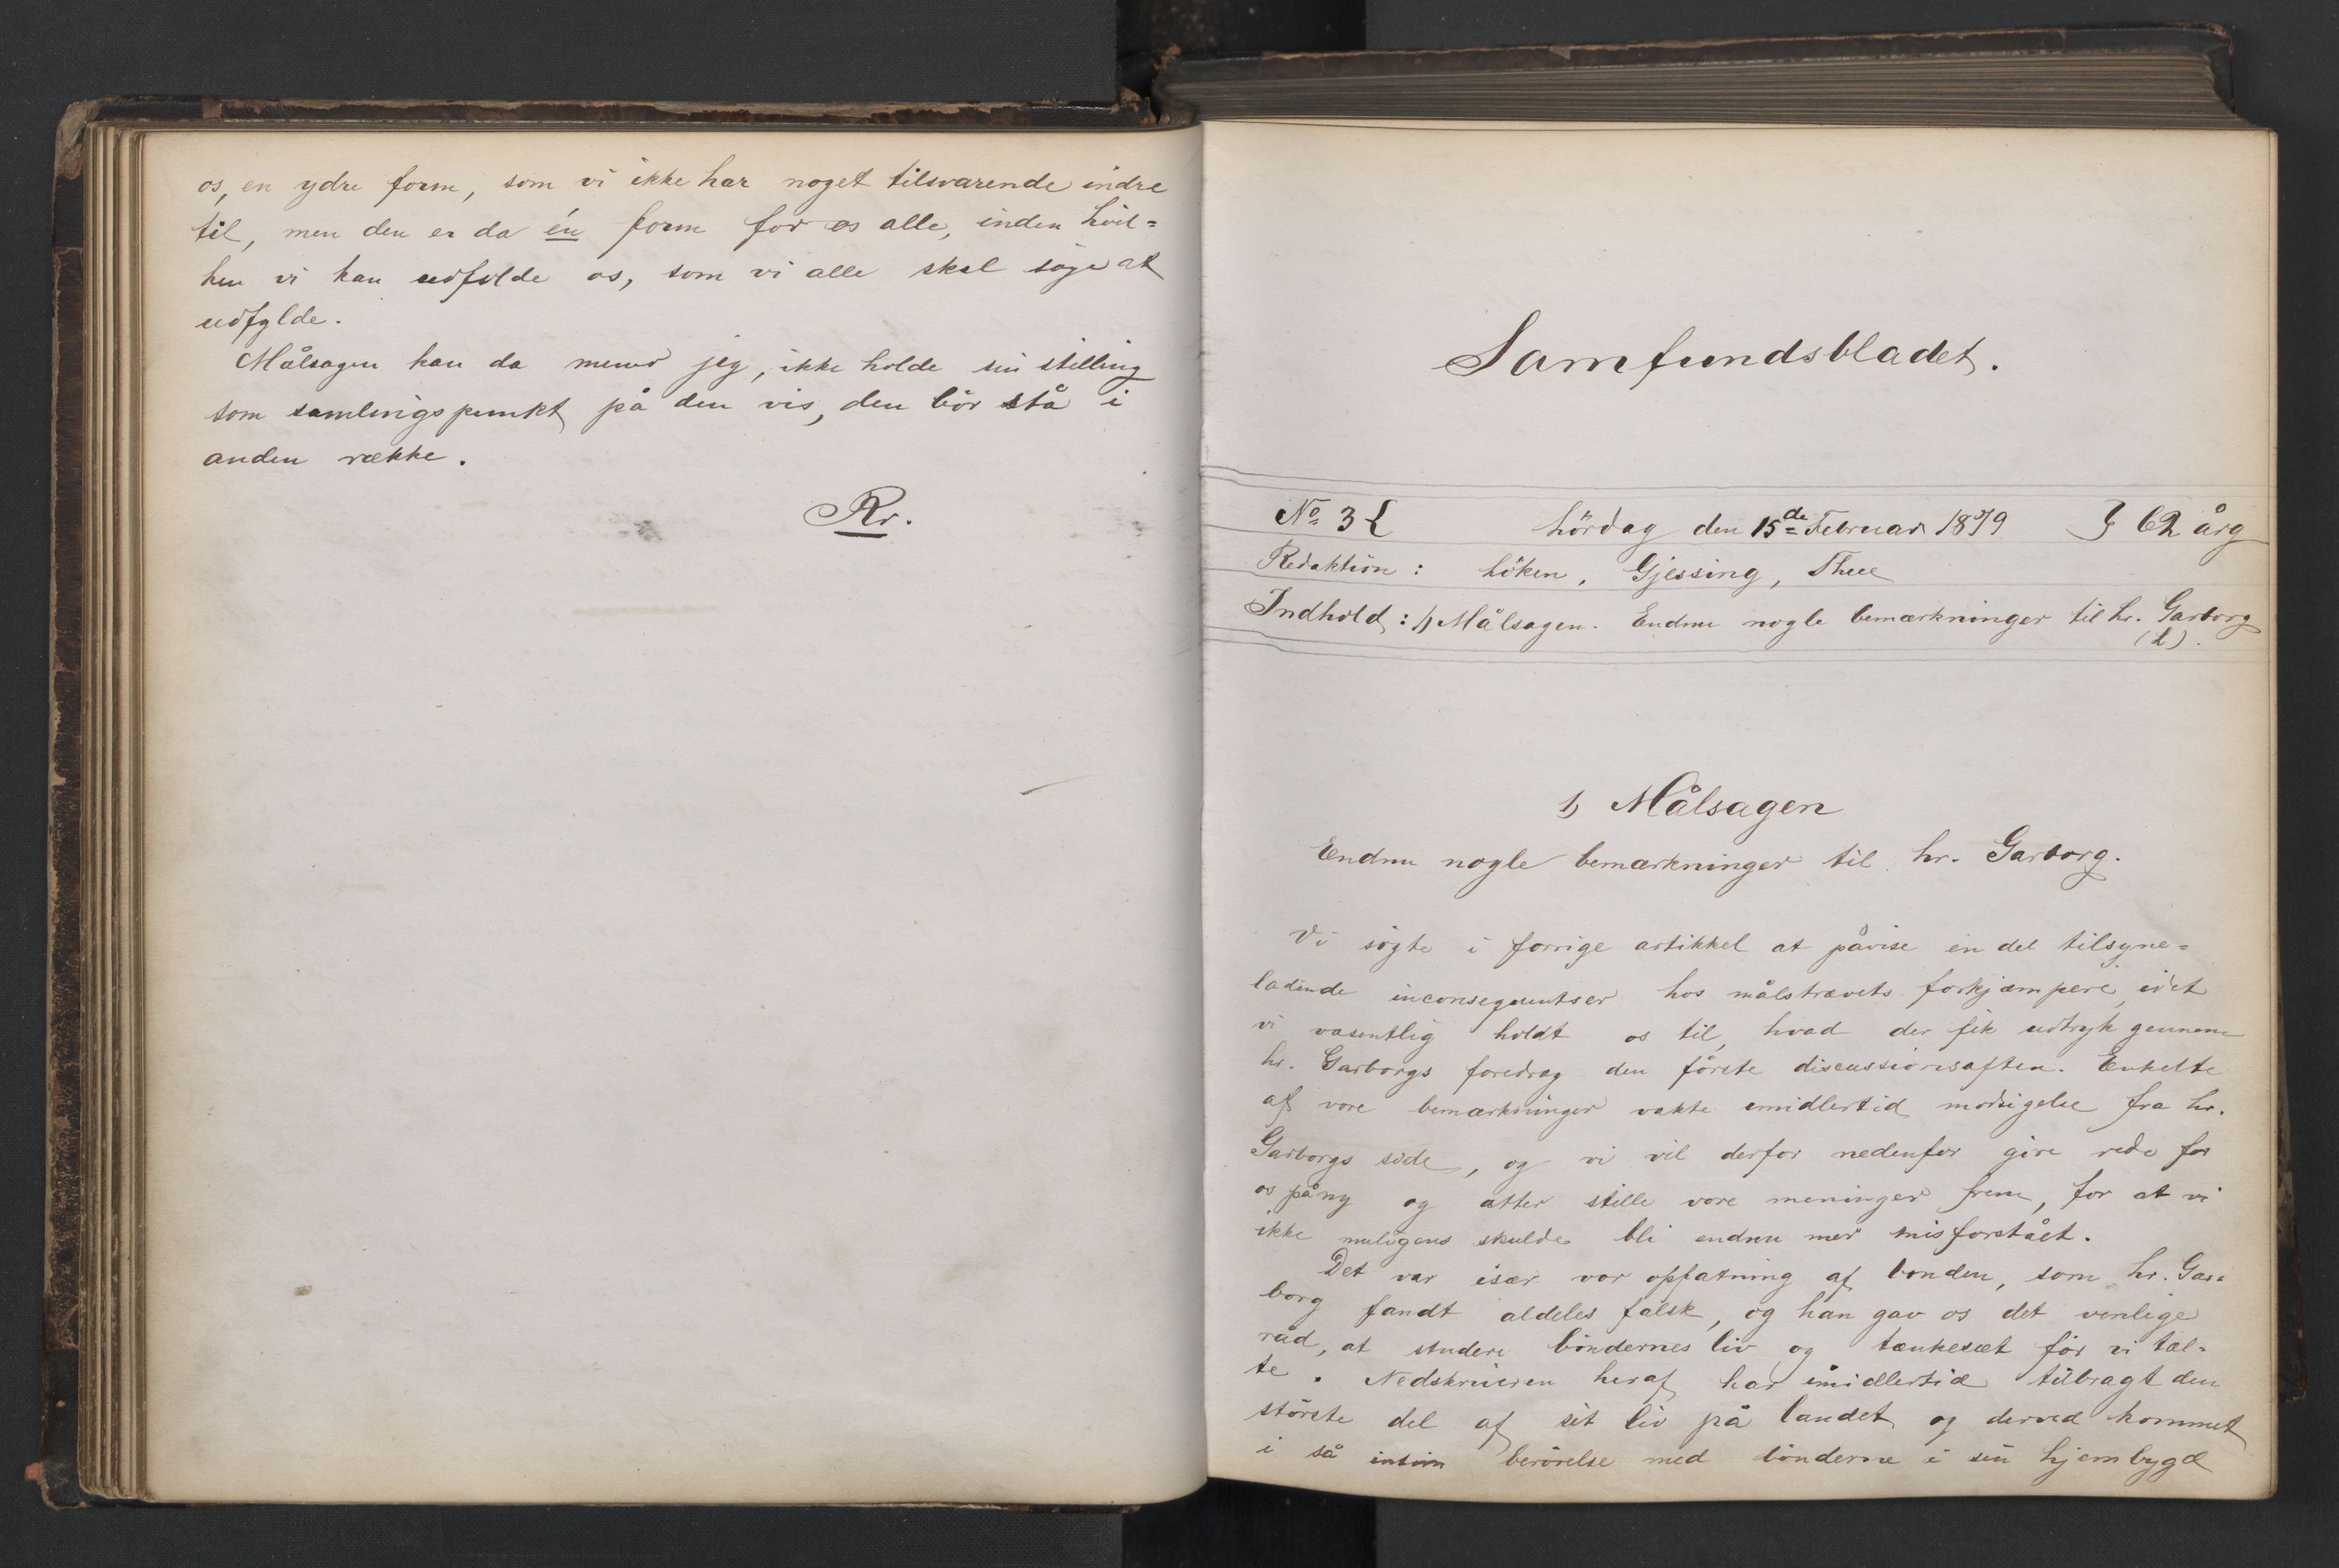 os, en ydre form, som vi ikke har noget tilsvarende indre
til, men den er da én form for os alle, inden hvil=
ken vi kan udfolde os, som vi alle skal søge at
udfylde.
Målsagen kan da mener jeg, ikke holde sin stilling
som samlingspunkt på den vis, den bör stå i
anden række.
Kr.
Samfundsbladet.
No 3
Lördag den 15de Februar 1879
62 årg
Redaktion: Löken, Gjessing, Thue
Indhold: 1, Målsagen. Endnu nogle bemærkninger til hr. Garborg
(L).
1, Målsagen
Endnu nogle bemærkninger til hr. Garborg.
Vi sögte i forrige artikkel at påvise en del tilsyne=
ladende inconsequentser hos målstrævets forkjæmpere, idet
vi væsentlig holdt os til, hvad der fik udtryk gennem
hr. Garborgs foredrag den förste discussionsaften. Enkelte
af vore bemærkninger vakte emidlertid modsigelse fra hr.
Garborgs side, og vi vil derfor nedenfor göre rede for
os påny og atter stille vore meninger frem, for at vi
ikke muligens skulde bli endnu mer misforstået.
Det var især vor opfatning af bonden, som hr. Gar=
borg fandt aldeles falsk, og han gav os det venlige
råd, at studere böndernes liv og tænkesæt för vi tal=
te. Nedskriveren heraf har imidlertid tilbragt den
störste del af sit liv på landet og derved kommet
i så intim berörelse med bönderne i sin hjembygd